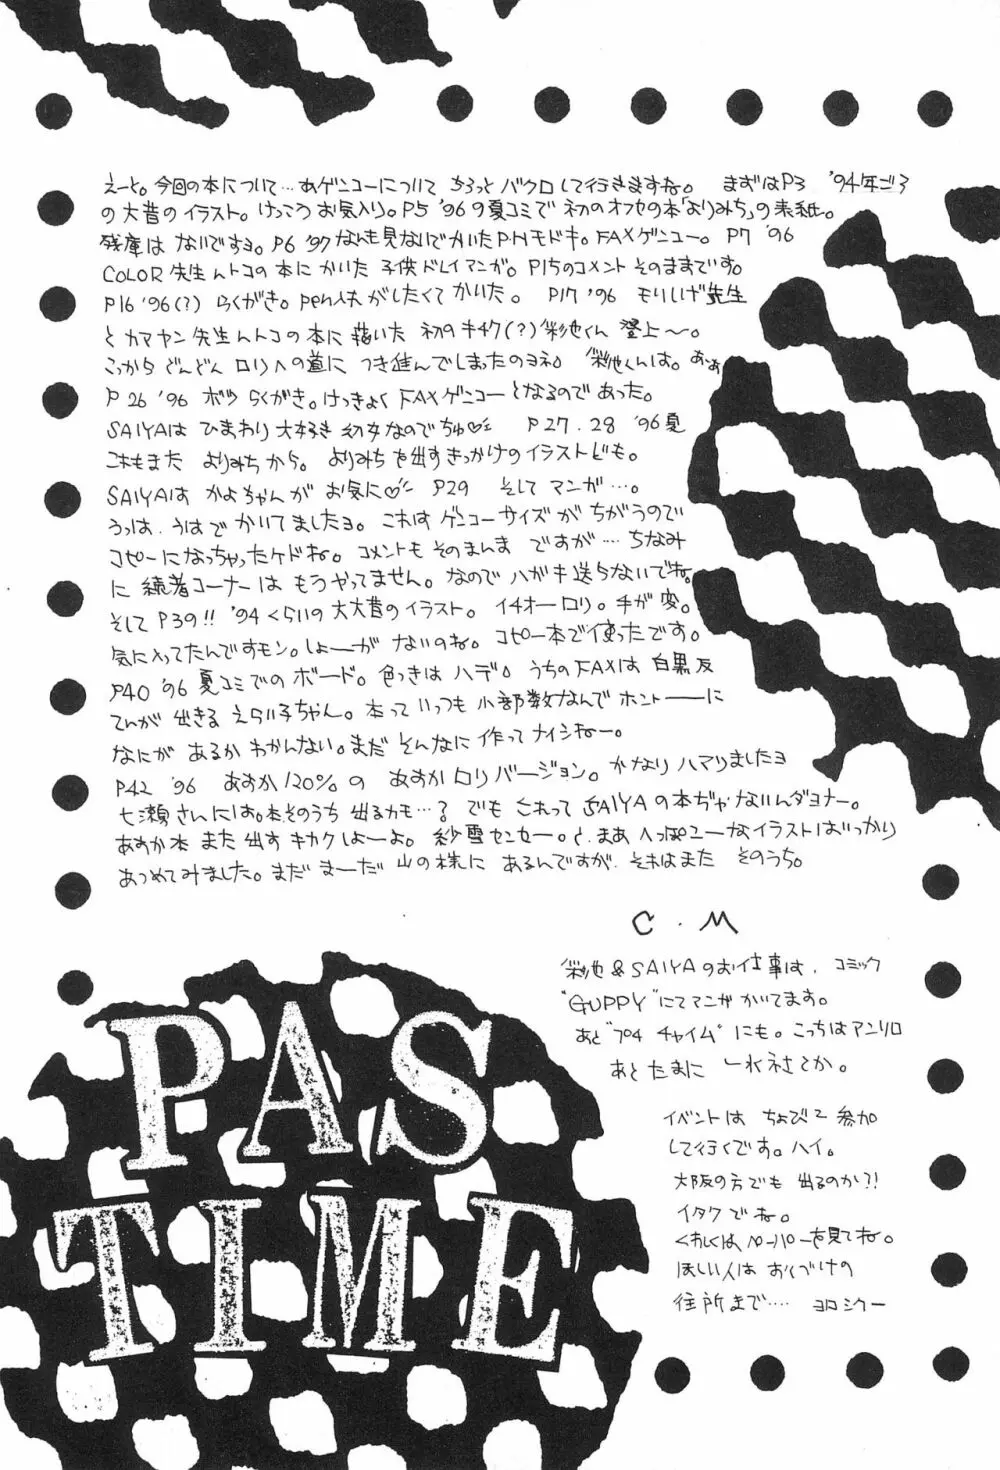 えーと。今回の本について…あゲンコーについて ちろっと バクロして行きますね。 まずはP3 '94年ごろ
の大昔のイラスト。けっこうお気入り。P5 '96の夏コミで 初のオフセの本「よりみち」の表紙。
残庫は ないですヨ。P6 '97なんも見ないでかいたP.H.モドキ。FAXゲンコー。P7 '96
COLOR先生んトコの本に かいた 子供ドレイマンガ。P15のコメント そのままです。
P16 '96(?) らくがき。pen入れ がしたくて かいた。 P17 '96 モリしげ先生
と カマヤン 先生んトコの本に描いた 初のキチク(?)彩池くん 登上〜。
こっから どんどん ロリへの道に つき進んでしまったのヨネ。 彩池くんは。あぁ
P26 '96 ボツ らくがき。けっきょく FAXゲンコーとなるのであった。
SAIYAは ひまわり 大好き 幼女なのでちゅ♡ P27.28 '96夏
これもまた よりみちから。よりみちを出すきっかけのイラストども。
SAIYAは かよちゃんが お気に♡ P29 そして マンガ…。
うっは、うはで かいてましたヨ。これは ゲンコーサイズが ちがうので
コピーになっちゃったケドね。コメントも そのまんま ですが…. ちなみ
に 読者コーナーは もうやってません。なので ハガキ送らないでね。
そして P39!! '94くらいの大大昔のイラスト。イ4オーロリ。手が変。
気に入ってたんですモン。しょーが ないのね。コピー本で使ったです。
P40 '96 夏コミでの ボード。色つきは ハデ。うちのFAXは 白黒反
てんが 出きる えらい子ちゃん。本って いっつも 小部数なんで ホントーーに
なにが あるか わかんない。まだ そんなに 作って ナイシねー。
P42 '96 あすか120%の あすかロリバージョン。かなり ハマりましたヨ
七瀬さんには。本そのうち 出るカモ…? でも これって SAIYAの本ぢゃないんダヨナー。
あすか本 また出す キカクしよーよ。紗雪センセー。と、まあ へっぽコーなイラストばっかり
あつめてみました。まだ まーだ 山の様に あるんですが、それはまた そのうち。
C.M
彩池&SAIYAのお仕事は、コミック
"GUPPY"にてマンガ かいてます。
あと"プチ チャイム"にも。こっちはアンソロ
あと たまに 一水社とか。
イベントは ちょびっと参加
して行くです。ハイ。
大阪の方でも 出るのか?!
イタクでね。
くわしくは ペーパーを見てね。
ほしい人は おくづけの
住所まで…. ヨロシクー
PAS
TIME